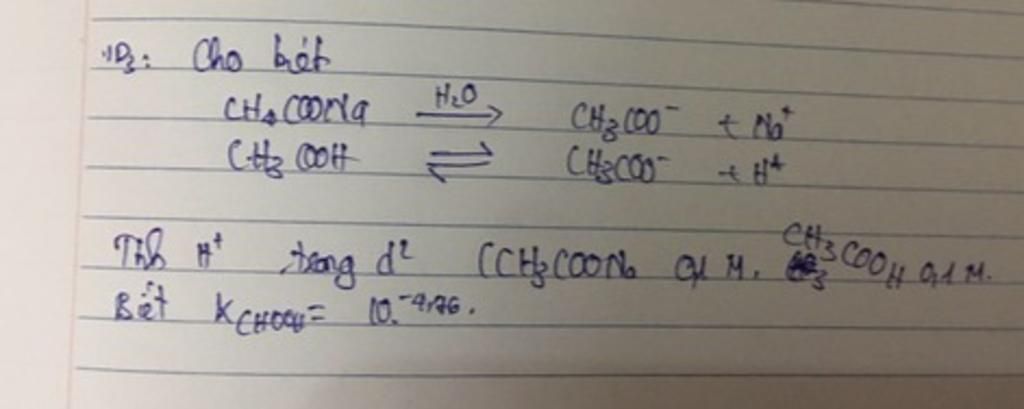 VD3: Cho biết
CH3COONa H2O → CH3COO⁻ + Na⁺
CH3COOH ⇌ CH3COO⁻ + H⁺
Tính H⁺ trong d² (CH3COONa 0,1 M, CH3COOH 0,1 M.
Biết KCHOOH = 10⁻⁴,⁷⁶.